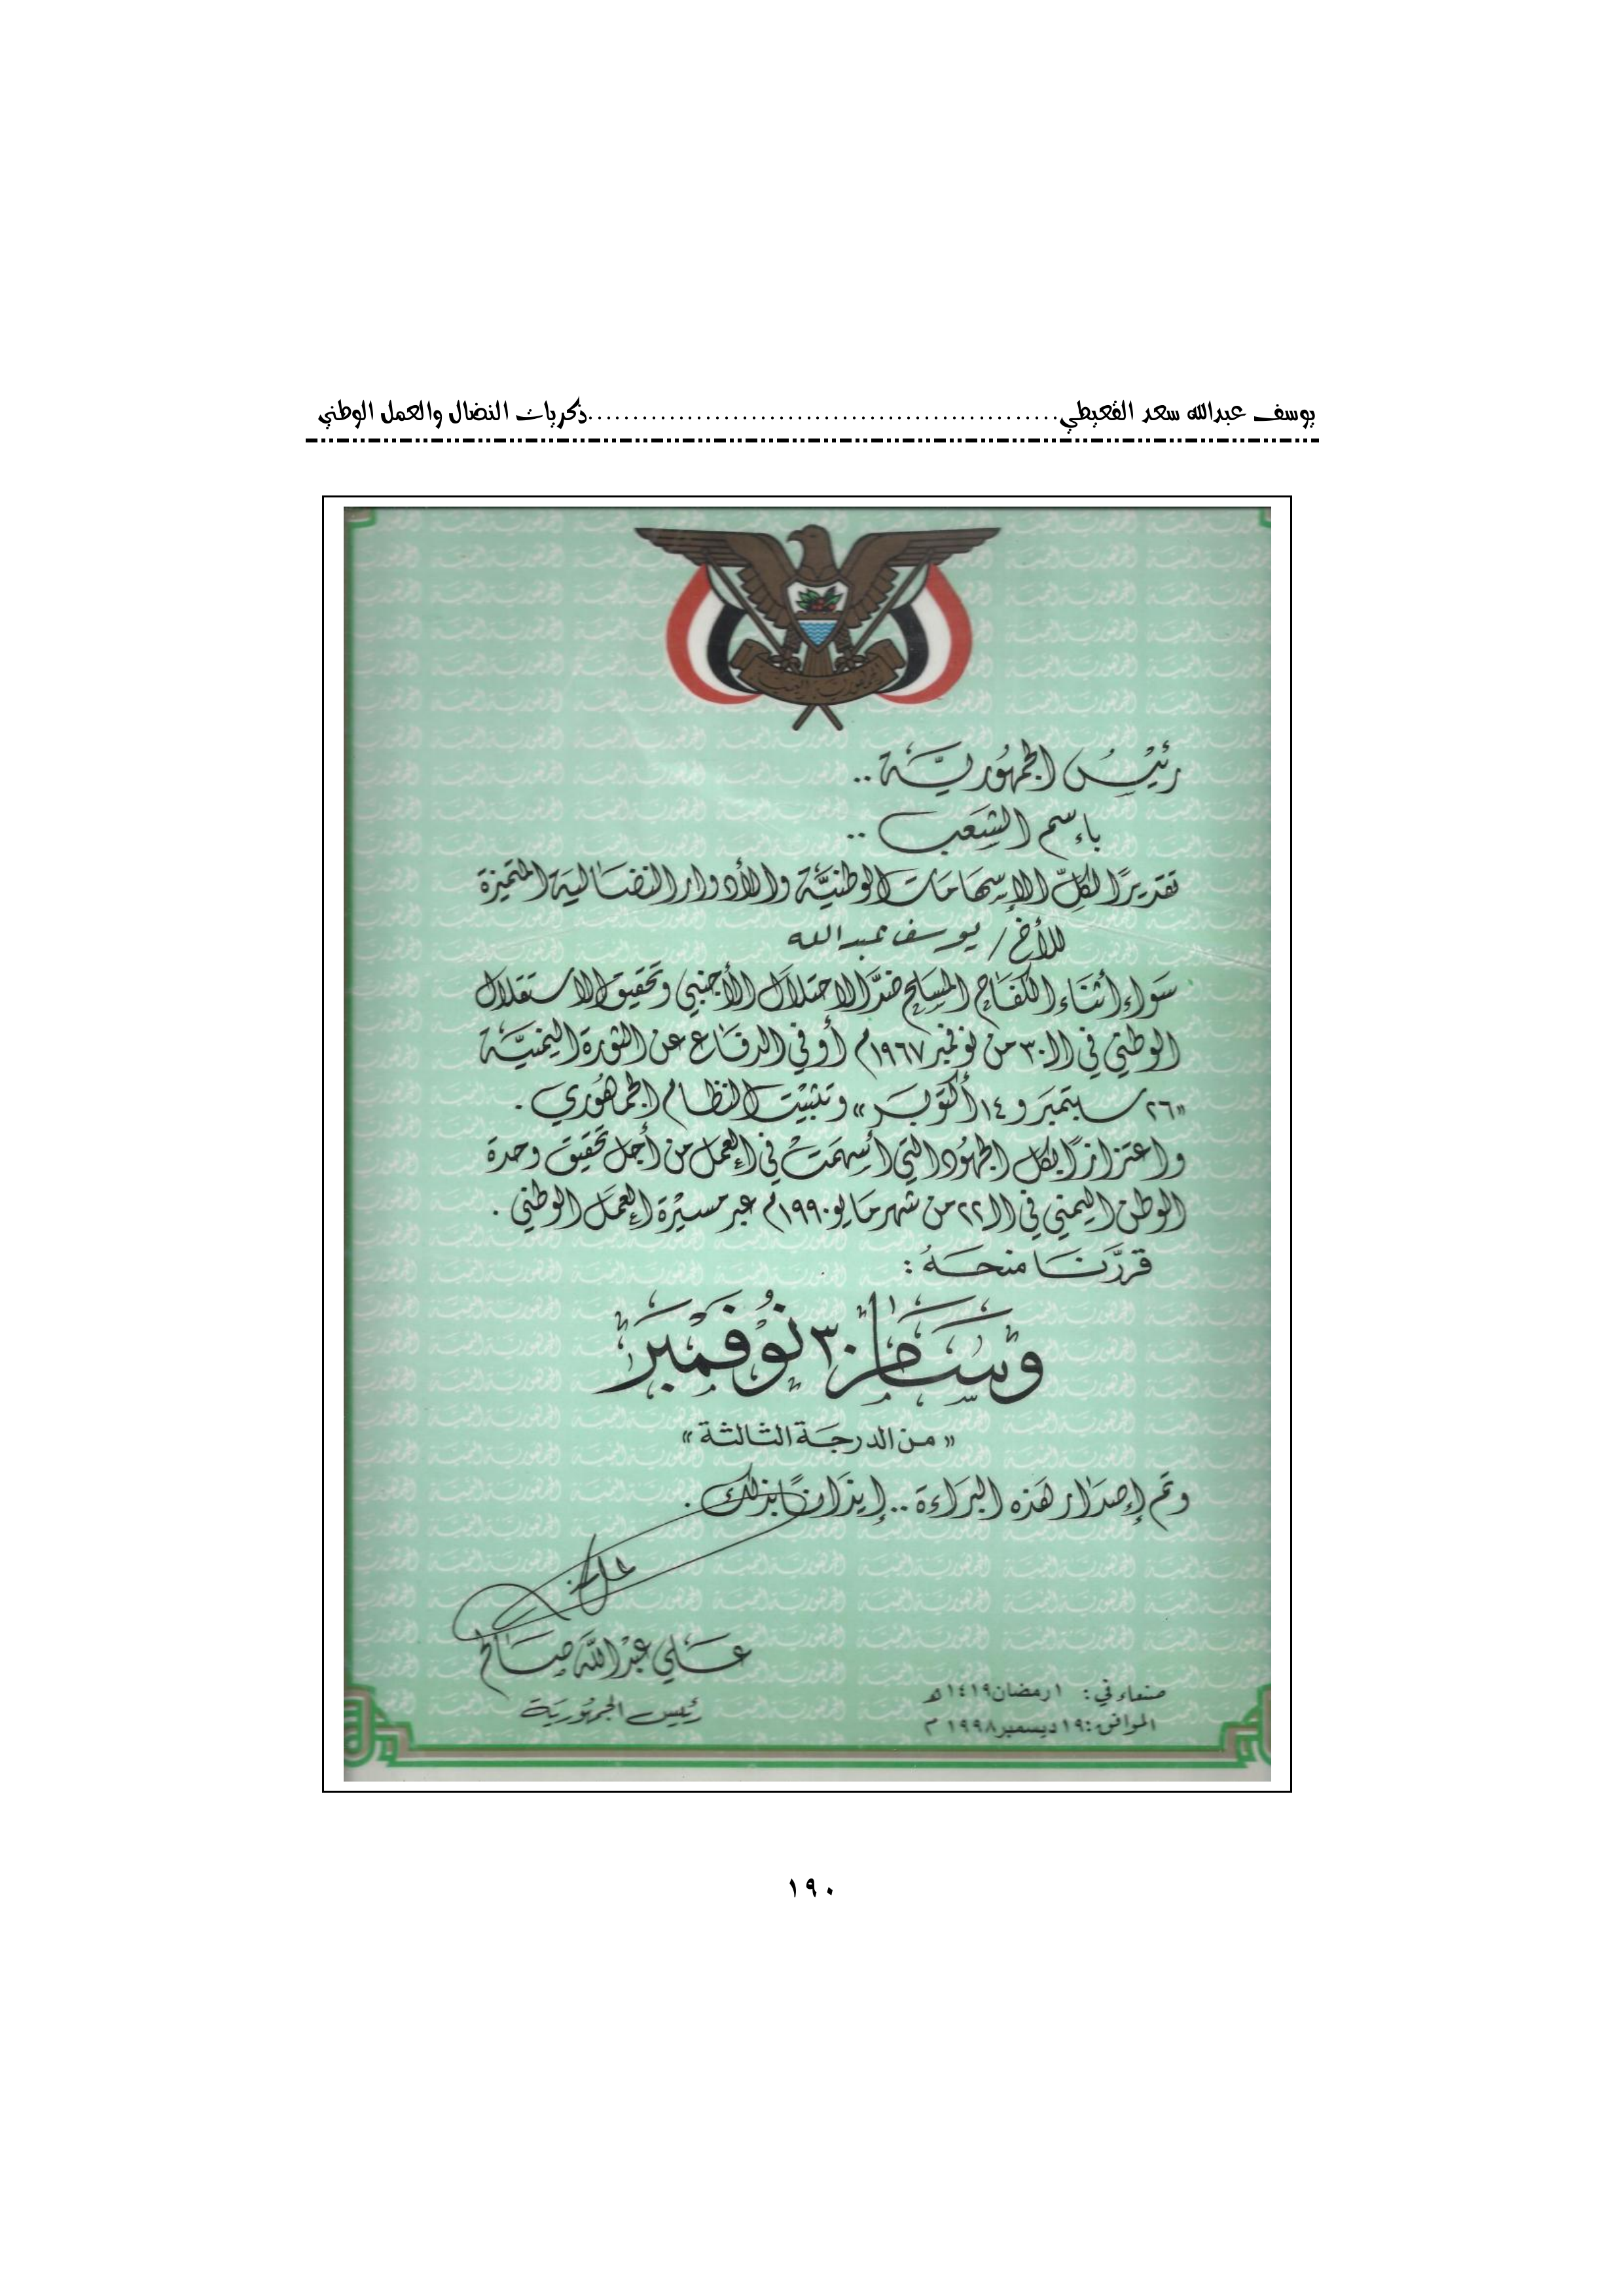 يوسف عبدالله سعد القعيطي......................................................ذكريات النضال والعمل الوطني
الجمهورية اليمنية
رئيْسُ الجمهُوريَّة ..
بإسم الشعَب ..
تقديرًا لكلِّ الإسهَامَات الوطنيَّة والأدوار النضَالية المتميزة
للأخ / يوسف عبدالله
سَواء أثنَاء الكفَاح المسَلح ضدَّ الاحتلاَل الأجنبي وتحقيق الاستقلال
الوطني في الـ٣٠ من نوفمبر ١٩٦٧م أو في الدفَاع عن الثورة اليمنيَّة
«٢٦ سبتمبَر و ١٤ أكتوبَر» وتثبيْت النظام الجمَاهُوري .
واعتزازًا بكل الجهُود التي أسهمَتْ في العمل من أجل تحقيق وحدة
الوطن اليمني في الـ٢٢ من شهر مَايو ١٩٩٠م عبر مسيْرة العمَل الوطني .
قررَّنَا منحَهُ :
وسَام ٣٠ نوُفمْبرَ
«من الدرجَة الثالثة»
وتم إصدَار هَذه البرَاءة .. إيذَانًا بذلك .
عَلي عبْداللّه صَالح
رئيس الجمهُوريَة
صنعاء في : ١ رمضان ١٤١٩هـ
الموافق : ١٩ ديسمبر ١٩٩٨م
١٩٠